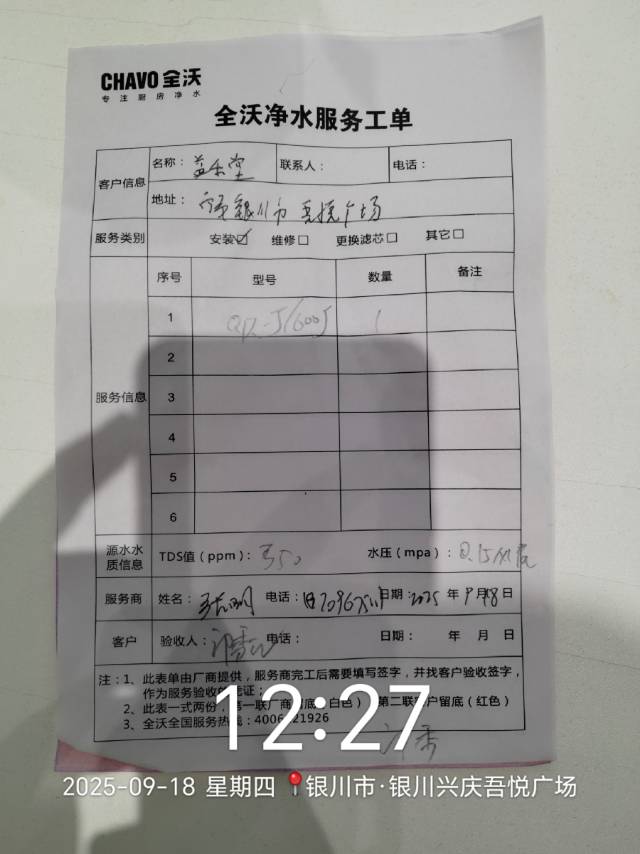 CHAVO 全沃
专注厨房净水
全沃净水服务工单
客户信息 名称：益禾堂 联系人： 电话：
地址： 银川市 吾悦广场
服务类别 安装☑ 维修☐ 更换滤芯☐ 其它☐
服务信息 序号 型号 数量 备注
1 1
2
3
4
5
6
源水水质信息 TDS值（ppm）：350 水压（mpa）：
服务商 姓名： 电话： 日期：2025 年 9 月 18 日
客户 验收人： 电话： 日期： 年 月 日
注：1、此表单由厂商提供，服务商完工后需要填写签字，并找客户验收签字，
作为服务验收的凭证；
2、此表一式两份，第一联厂商留底（白色） 第二联客户留底（红色）
3、全沃全国服务热线：4006 21926
12:27
2025-09-18 星期四 📍银川市·银川兴庆吾悦广场